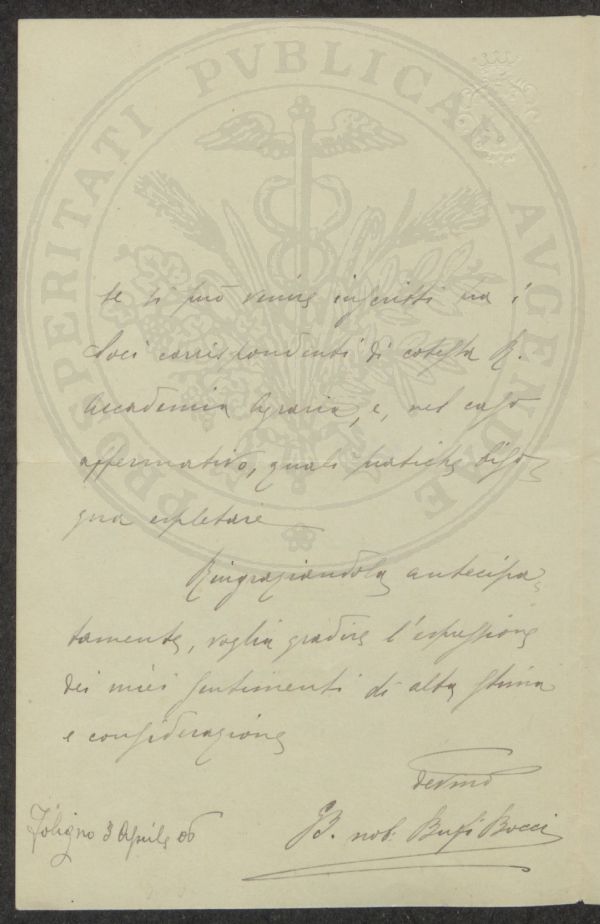 PROSPERITATI PVBLICAE AVGENDAE
se si può venire inscritti tra i
Soci corrispondenti di cotesta R.
Accademia Agraria, e, nel caso
affermativo, quali pratiche biso-
gna espletare
Ringraziandola antecipa-
tamente, voglia gradire l'espressione
dei miei sentimenti di alta stima
e considerazione
devmo
B. nob. Bufi Bocci
Foligno 3 Aprile 06